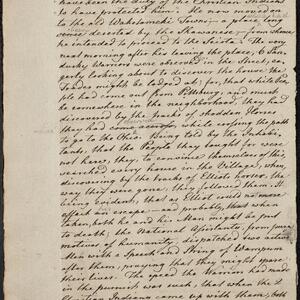 have been the duty of the Christian Indians
to have protected them: He now moved on
to the old Wakatameki Towns — a place long
since deserted by the Shawanese — from whence
he intended to proceed to the Scioto. The very
next morning after his leaving the place, 6 San-
dusky Warriors were observed in the Street, ea-
gerly looking about to discover the house the
Trader might be lodged at; for, that white Peo-
ple had come out from Pittsburg, and must
be somewhere in the neighborhood, they had
discovered by the tracks of shodden Horses
they had come across while crossing the path
to go to the Ohio. Being told by the Inhabi-
tants, that the People they sought for were
not here, they, to convince themselves of this,
searched every house in the Village, when
discovering by the tracks of Elliots horses, the
way they were gone, they followed them. It
being evident, that as Elliot could not now
effect an escape — and probably, thus when
taken, both he and his Man might be put
to death; the National Assistants, from pure
motives of humanity, dispatched two active
Men with a Speech and String of Wampum
after them, praying that they might spare
their lives. The speed the Warriors had made
in the pursuit was such, that when the 2
Christian Indians came up with them, both